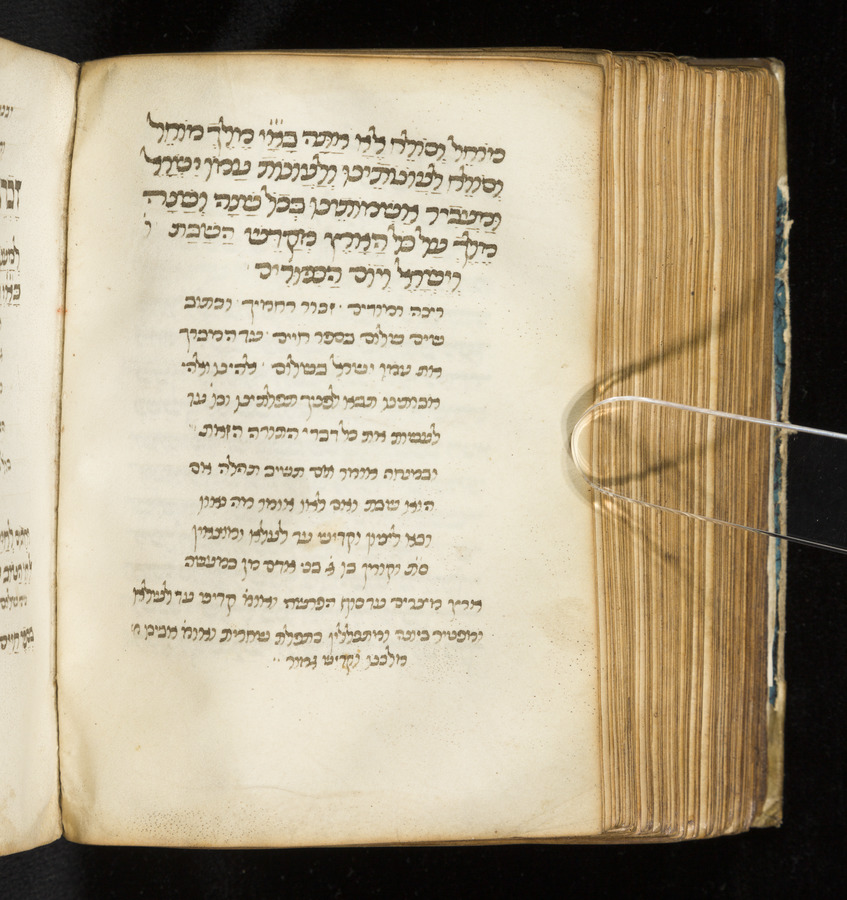 מוחל וסולח לנו אתה בא״יי מלך מוחל
וסולח לעונותינו ולעונות עמו ישראל
ומעביר אשמותינו בכל שנה ושנה
מלך על כל הארץ מקדש השבת
וישראל ויום הכפורים
רצה ומודים זכור רחמיך וכתוב
שים שלום בספר חיים עד המברך
את עמו ישראל בשלום
אבותינו תבא לפניך תפלתינו וכו׳ עד
לעשות את כל דברי התורה הזאת
ובמנחה אומר אם תשיב תהלה אם
הוא שבת ואם לאו אומר מה
ובא לציון וקדיש עד לעלא ומוציאין
סת וקורין בו ג׳ בני אדם מן כמעשה
ארץ מצרים עד סוף הפרשה ואומ׳ קדיש עד לעילא
ומפטיר ביונה ומתפללין כתפלת שחרית ואומ׳ אבינו
מלכנו וקדיש גמור